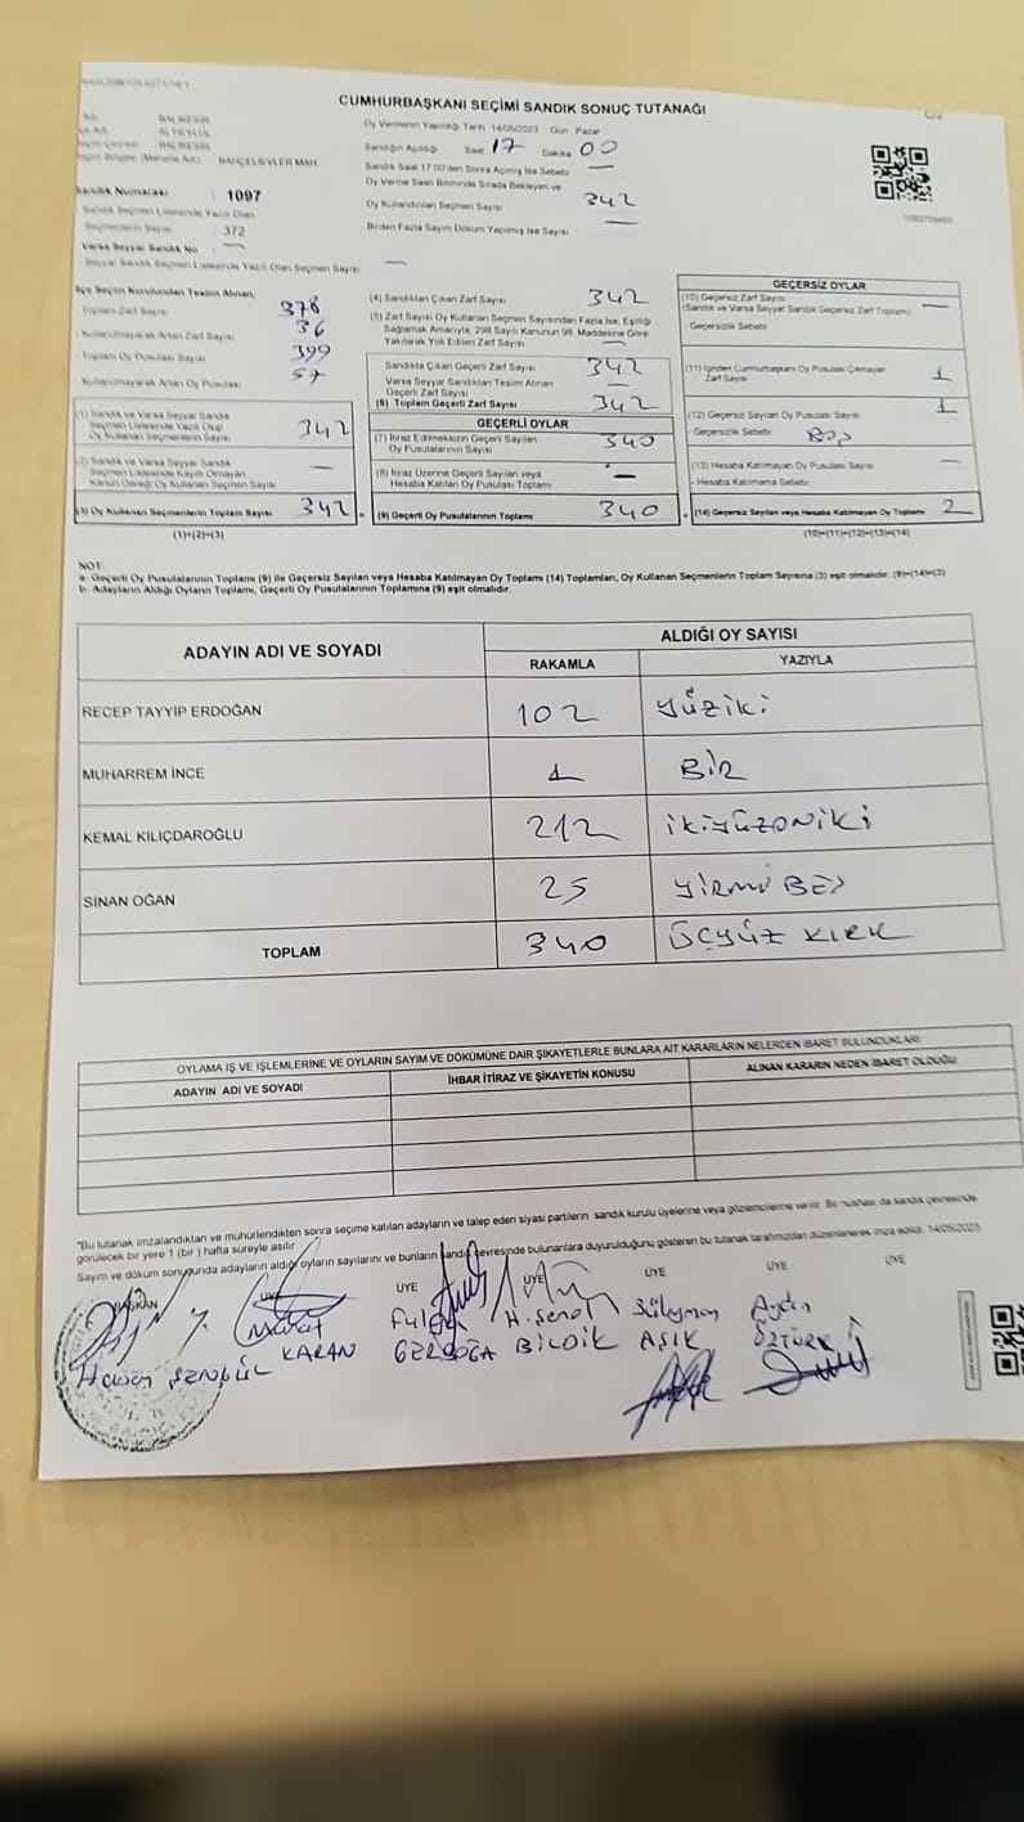 CUMHURBAŞKANI SEÇİMİ SANDIK SONUÇ TUTANAĞI
Oy Vermenin Yapıldığı Tarih 14/05/2023 Gün Pazar
BALIKESİR
ALTIEYLÜL
BALIKESİR
BAHÇELİEVLER MAH.
Sandığın Açıldığı Saat 17 Dakika 00
Sandık Saat 17:00'den Sonra Açılmış İse Sebebi —
Oy Verme Saati Bitiminde Sırada Bekleyen ve
Oy Kullandırılan Seçmen Sayısı 342
Birden Fazla Sayım Döküm Yapılmış İse Sayısı —
Sandık Numarası : 1097
Sandık Seçmen Listesinde Yazılı Olan
Seçmenlerin Sayısı 372
Varsa Seyyar Sandık No —
Seyyar Sandık Seçmen Listesinde Yazılı Olan Seçmen Sayısı —
İlçe Seçim Kurulundan Teslim Alınan;
Toplam Zarf Sayısı 378
Kullanılmayarak Artan Zarf Sayısı 36
Toplam Oy Pusulası Sayısı 399
Kullanılmayarak Artan Oy Pusulası 57
(1) Sandık ve Varsa Seyyar Sandık
Seçmen Listesinde Yazılı Olup
Oy Kullanan Seçmenlerin Sayısı 342
(2) Sandık ve Varsa Seyyar Sandık
Seçmen Listesinde Kayıtlı Olmayan
Kanun Gereği Oy Kullanan Seçmen Sayısı —
(3) Oy Kullanan Seçmenlerin Toplam Sayısı 342
(1)+(2)=(3)
(4) Sandıktan Çıkan Zarf Sayısı 342
(5) Zarf Sayısı Oy Kullanan Seçmen Sayısından Fazla İse, Eşitliği
Sağlamak Amacıyla, 298 Sayılı Kanunun 98. Maddesine Göre
Yakılarak Yok Edilen Zarf Sayısı —
Sandıkta Çıkan Geçerli Zarf Sayısı 342
Varsa Seyyar Sandıktan Teslim Alınan
Geçerli Zarf Sayısı —
(6) Toplam Geçerli Zarf Sayısı 342
GEÇERLİ OYLAR
(7) İtiraz Edilmeksizin Geçerli Sayılan
Oy Pusulasının Sayısı 340
(8) İtiraz Üzerine Geçerli Sayılan veya
Hesaba Katılan Oy Pusulası Toplamı —
(9) Geçerli Oy Pusulalarının Toplamı 340
GEÇERSİZ OYLAR
(10) Geçersiz Zarf Sayısı —
(Sandık ve Varsa Seyyar Sandık Geçersiz Zarf Toplamı)
- Geçersizlik Sebebi
(11) İçinden Cumhurbaşkanı Oy Pusulası Çıkmayan
Zarf Sayısı 1
(12) Geçersiz Sayılan Oy Pusulası Sayısı 1
- Geçersizlik Sebebi Boş
(13) Hesaba Katılmayan Oy Pusulası Sayısı —
- Hesaba Katılmama Sebebi
(14) Geçersiz Sayılan veya Hesaba Katılmayan Oy Toplamı 2
(10)+(11)+(12)+(13)=(14)
NOT:
a- Geçerli Oy Pusulalarının Toplamı (9) ile Geçersiz Sayılan veya Hesaba Katılmayan Oy Toplamı (14) Toplamları, Oy Kullanan Seçmenlerin Toplam Sayısına (3) eşit olmalıdır. (9)+(14)=(3)
b- Adayların Aldığı Oyların Toplamı, Geçerli Oy Pusulalarının Toplamına (9) eşit olmalıdır.
ADAYIN ADI VE SOYADI
ALDIĞI OY SAYISI
RAKAMLA YAZIYLA
RECEP TAYYİP ERDOĞAN 102 YÜZİKİ
MUHARREM İNCE 1 BİR
KEMAL KILIÇDAROĞLU 212 İKİYÜZONİKİ
SİNAN OĞAN 25 YİRMİ BEŞ
TOPLAM 340 ÜÇYÜZ KIRK
OYLAMA İŞ VE İŞLEMLERİNE VE OYLARIN SAYIM VE DÖKÜMÜNE DAİR ŞİKAYETLERLE BUNLARA AİT KARARLARIN NELERDEN İBARET BULUNDUKLARI
ADAYIN ADI VE SOYADI İHBAR İTİRAZ VE ŞİKAYETİN KONUSU ALINAN KARARIN NEDEN İBARET OLDUĞU
"Bu tutanak imzalandıktan ve mühürlendikten sonra seçime katılan adayların ve talep eden siyasi partilerin sandık kurulu üyelerine veya gözlemcilerine verilir. Bir nüshası da sandık çevresinde
görülecek bir yere 1 (bir ) hafta süreyle asılır.
Sayım ve döküm sonucunda adayların aldığı oyların sayılarını ve bunların sandık çevresinde bulunanlara duyurulduğunu gösteren bu tutanak tarafımızdan düzenlenerek imza edildi. 14/05/2023
BAŞKAN ÜYE ÜYE ÜYE ÜYE ÜYE ÜYE
Hasan ŞENGÜL
Murat KARAN
H. Şenol BİLDİK
Süleyman AŞIK
Aydın ÖZTÜRK